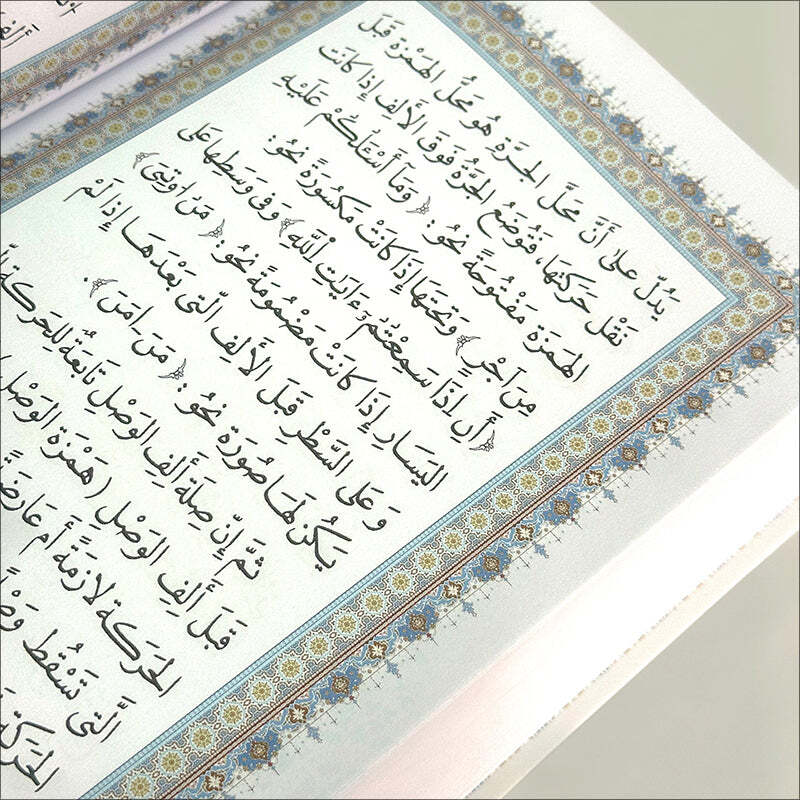 يَدُلُّ عَلىٰ أَنَّ مَحَلَّ الجَرَّةِ هُوَ مَحَلُّ الهَمْزَةِ قَبْلَ
نَقْلِ حَرَكَتِهَا، فَتُوضَعُ الجَرَّةُ فَوْقَ الأَلِفِ إِذَا كَانَت
الهَمْزَةُ مَفْتُوحَةً نَحْوُ: ﴿ وَمَآ أَسْـَٔلُكُمْ عَلَيْهِ
مِنَ اَجْرٍ ﴾ وَتَحْتَهَا إِذَا كَانَتْ مَكْسُورَةً نَحْوُ:
﴿ أَنِ اِذَا سَمِعْتُمُۥٓ ءَايَٰتِ اِ۬للَّهِ ﴾ وَفي وَسَطِهَا عَلى
اليَسَارِ إِذَا كَانَتْ مَضْمُومَةً نَحْوُ: ﴿ مَنُ ا۟وتِيَ ﴾
وَعَلى السَّطْرِ قَبْلَ الأَلِفِ الَّتي بَعْدَهَا إِذَا لَمْ
يَكُنْ لَهَا صُورَةٌ نَحْوُ: ﴿ مَنَ ـ امَنَ ﴾.
ثُمَّ إِنَّ صِلَةَ أَلِفِ الوَصْلِ تَابِعَةٌ لِلحَرَكَةِ
قَبْلَ أَلِفِ الوَصْلِ (هَمْزَةِ الوَصْلِ)
الحَرَكَةُ لَازِمَةً أَم عَارِضَةً
الَّتي تَسْقُطُ وَصْلًا